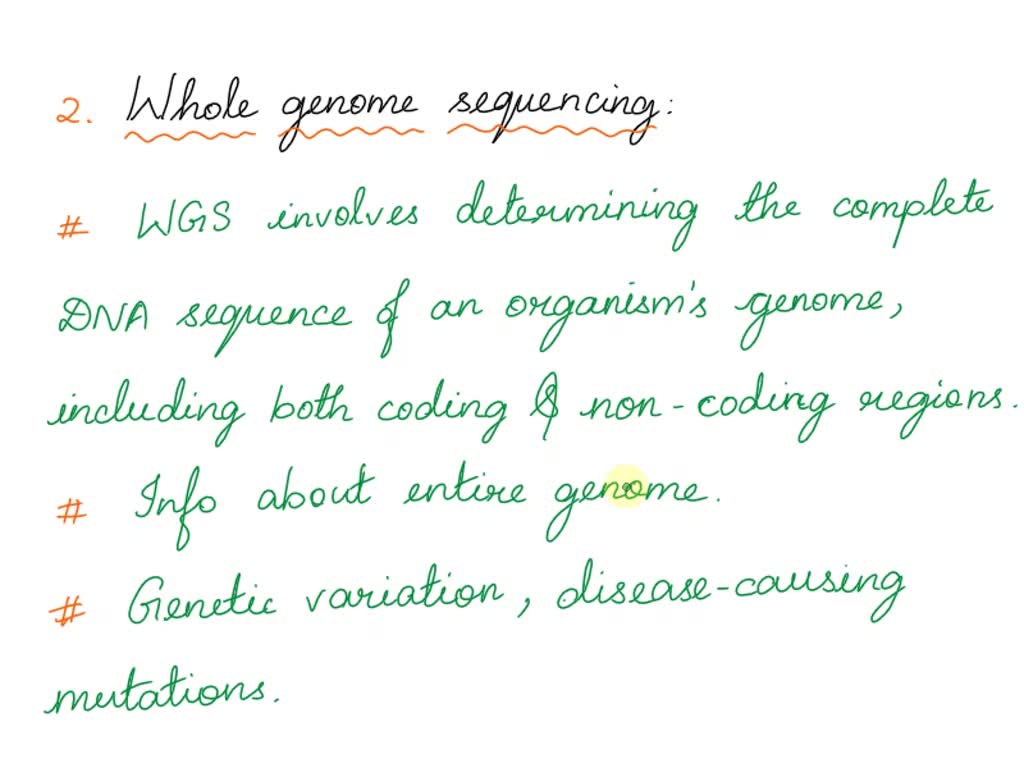 2. Whole genome sequencing:
# WGS involves determining the complete
DNA sequence of an organism's genome,
including both coding & non-coding regions.
# Info about entire genome.
# Genetic variation, disease-causing
mutations.